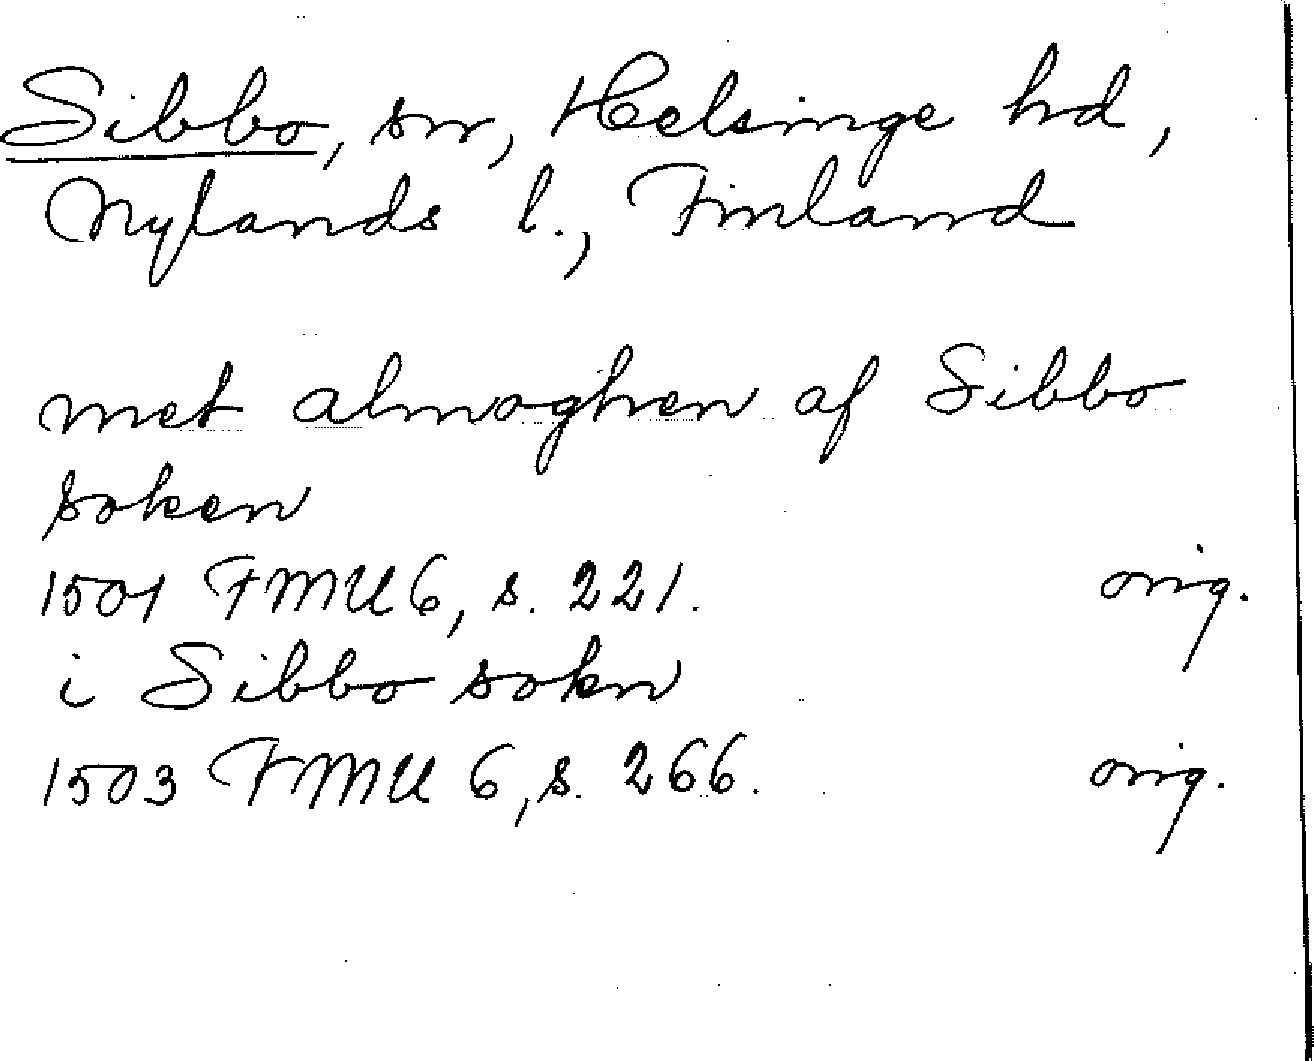 Sibbo, sn, Helsinge hd,
Nylands l., Finland
met almoghen af Sibbo
soken
1501 FMU 6, s. 221. orig.
i Sibbo sokn
1503 FMU 6, s. 266. orig.